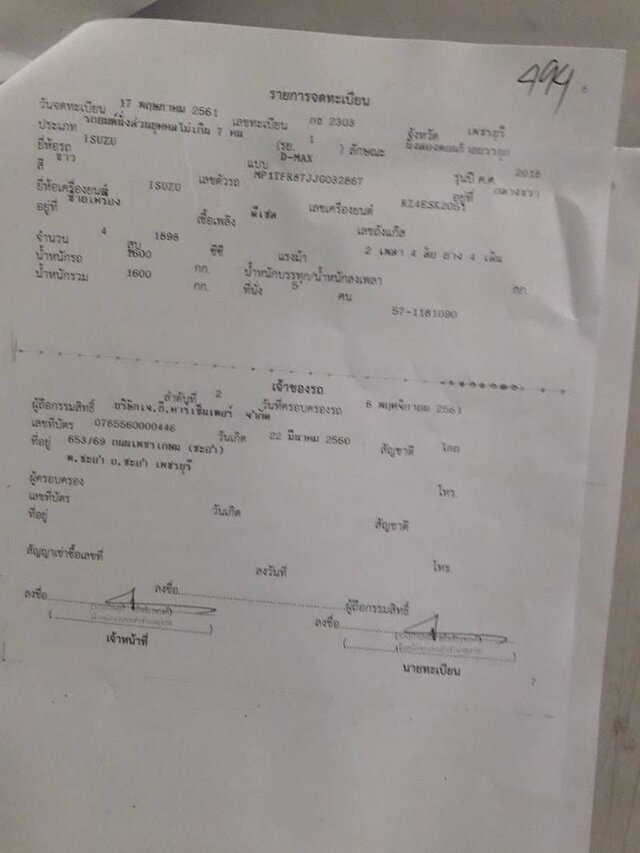 494
รายการจดทะเบียน
วันจดทะเบียน 17 พฤษภาคม 2561 เลขทะเบียน กอ 2303 จังหวัด เพชรบุรี
ประเภท รถยนต์นั่งส่วนบุคคลไม่เกิน 7 คน (รย. 1 ) ลักษณะ นั่งสองตอนท้ายบรรทุก
ยี่ห้อรถ ISUZU แบบ D-MAX รุ่นปี ค.ศ. 2018
สี ขาว เลขตัวรถ MP1TFR87JJG032867 อยู่ที่ กลางขวา
ยี่ห้อเครื่องยนต์ ISUZU เลขเครื่องยนต์ RZ4ESK2051
อยู่ที่ ซ้ายเครื่อง เชื้อเพลิง ดีเซล เลขถังแก๊ส
จำนวน 4 สูบ 1898 ซีซี แรงม้า 2 เพลา 4 ล้อ ยาง 4 เส้น
น้ำหนักรถ 1600 กก. น้ำหนักบรรทุก/น้ำหนักลงเพลา กก.
น้ำหนักรวม 1600 กก. ที่นั่ง 5 คน
57-1181090
เจ้าของรถ
ลำดับที่ 2 วันที่ครอบครองรถ 6 พฤศจิกายน 2561
ผู้ถือกรรมสิทธิ์ บริษัทเจ.ที.คาร์เซ็นเตอร์ จำกัด
เลขที่บัตร 0765560000446 วันเกิด 22 มีนาคม 2560 สัญชาติ ไทย
ที่อยู่ 653/69 ถนนเพชรเกษม (ชะอำ)
ต.ชะอำ อ.ชะอำ เพชรบุรี
ผู้ครอบครอง โทร.
เลขที่บัตร วันเกิด สัญชาติ
ที่อยู่
สัญญาเช่าซื้อเลขที่ ลงวันที่ โทร.
ลงชื่อ ลงชื่อ ผู้ถือกรรมสิทธิ์
ลงชื่อ
เจ้าหน้าที่
นายทะเบียน